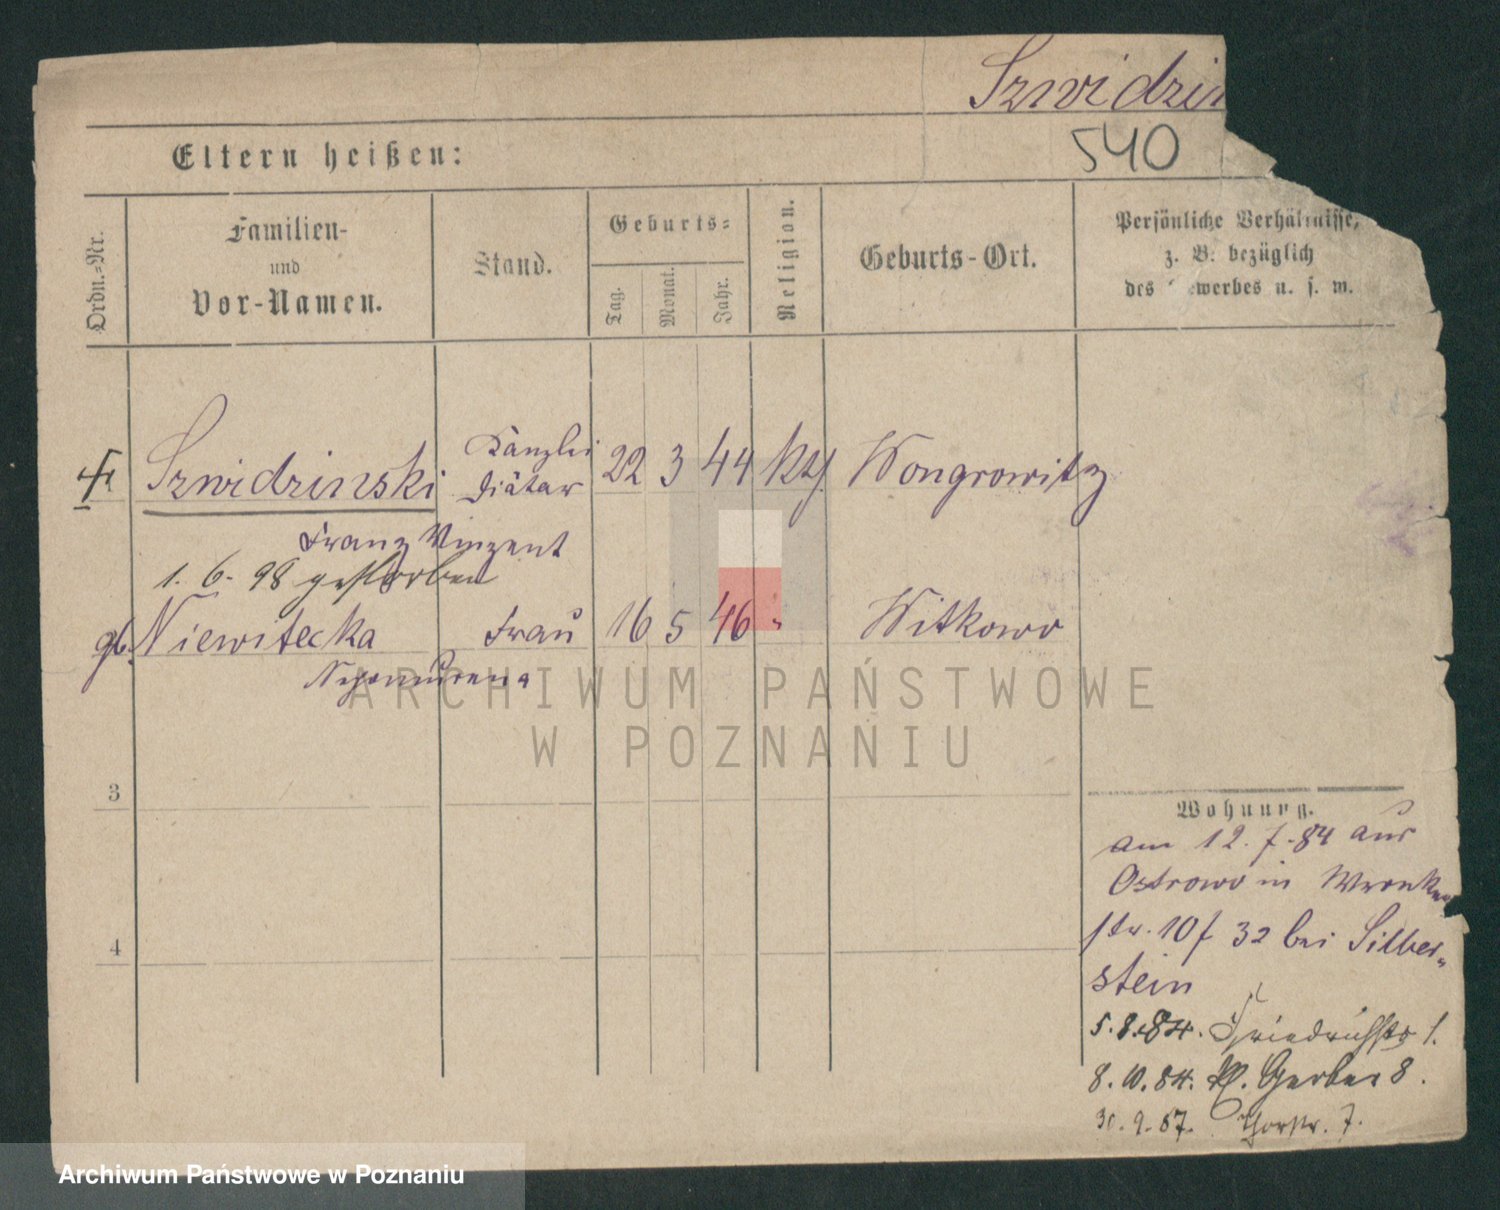 Szwidzin
540
Eltern heißen:
Ordn.-Nr.
Familien-
und
Vor-Namen.
Stand.
Geburts-
Tag.
Monat.
Jahr.
Religion.
Geburts-Ort.
Persönliche Verhältnisse,
z. B. bezüglich
des ewerbes u. s. w.
Szwidzinski
Kanzlei
Diätar
22 3 44 kth. Wongrowitz
Franz Vinzent
1. 6. 98 gestorben
gb. Niewitecka Frau 16 5 46 " Witkowo
Nepomucena
3
4
Wohnung.
am 12. 7. 84 aus
Ostrowo in Wronker
str. 10 f 32 bei Silber-
stein
5. 8. 84. Friedrichstr 1.
8. 10. 84. Kl. Gerber 8.
30. 9. 87. Thorstr. 7.
ARCHIWUM PAŃSTWOWE
W POZNANIU
Archiwum Państwowe w Poznaniu